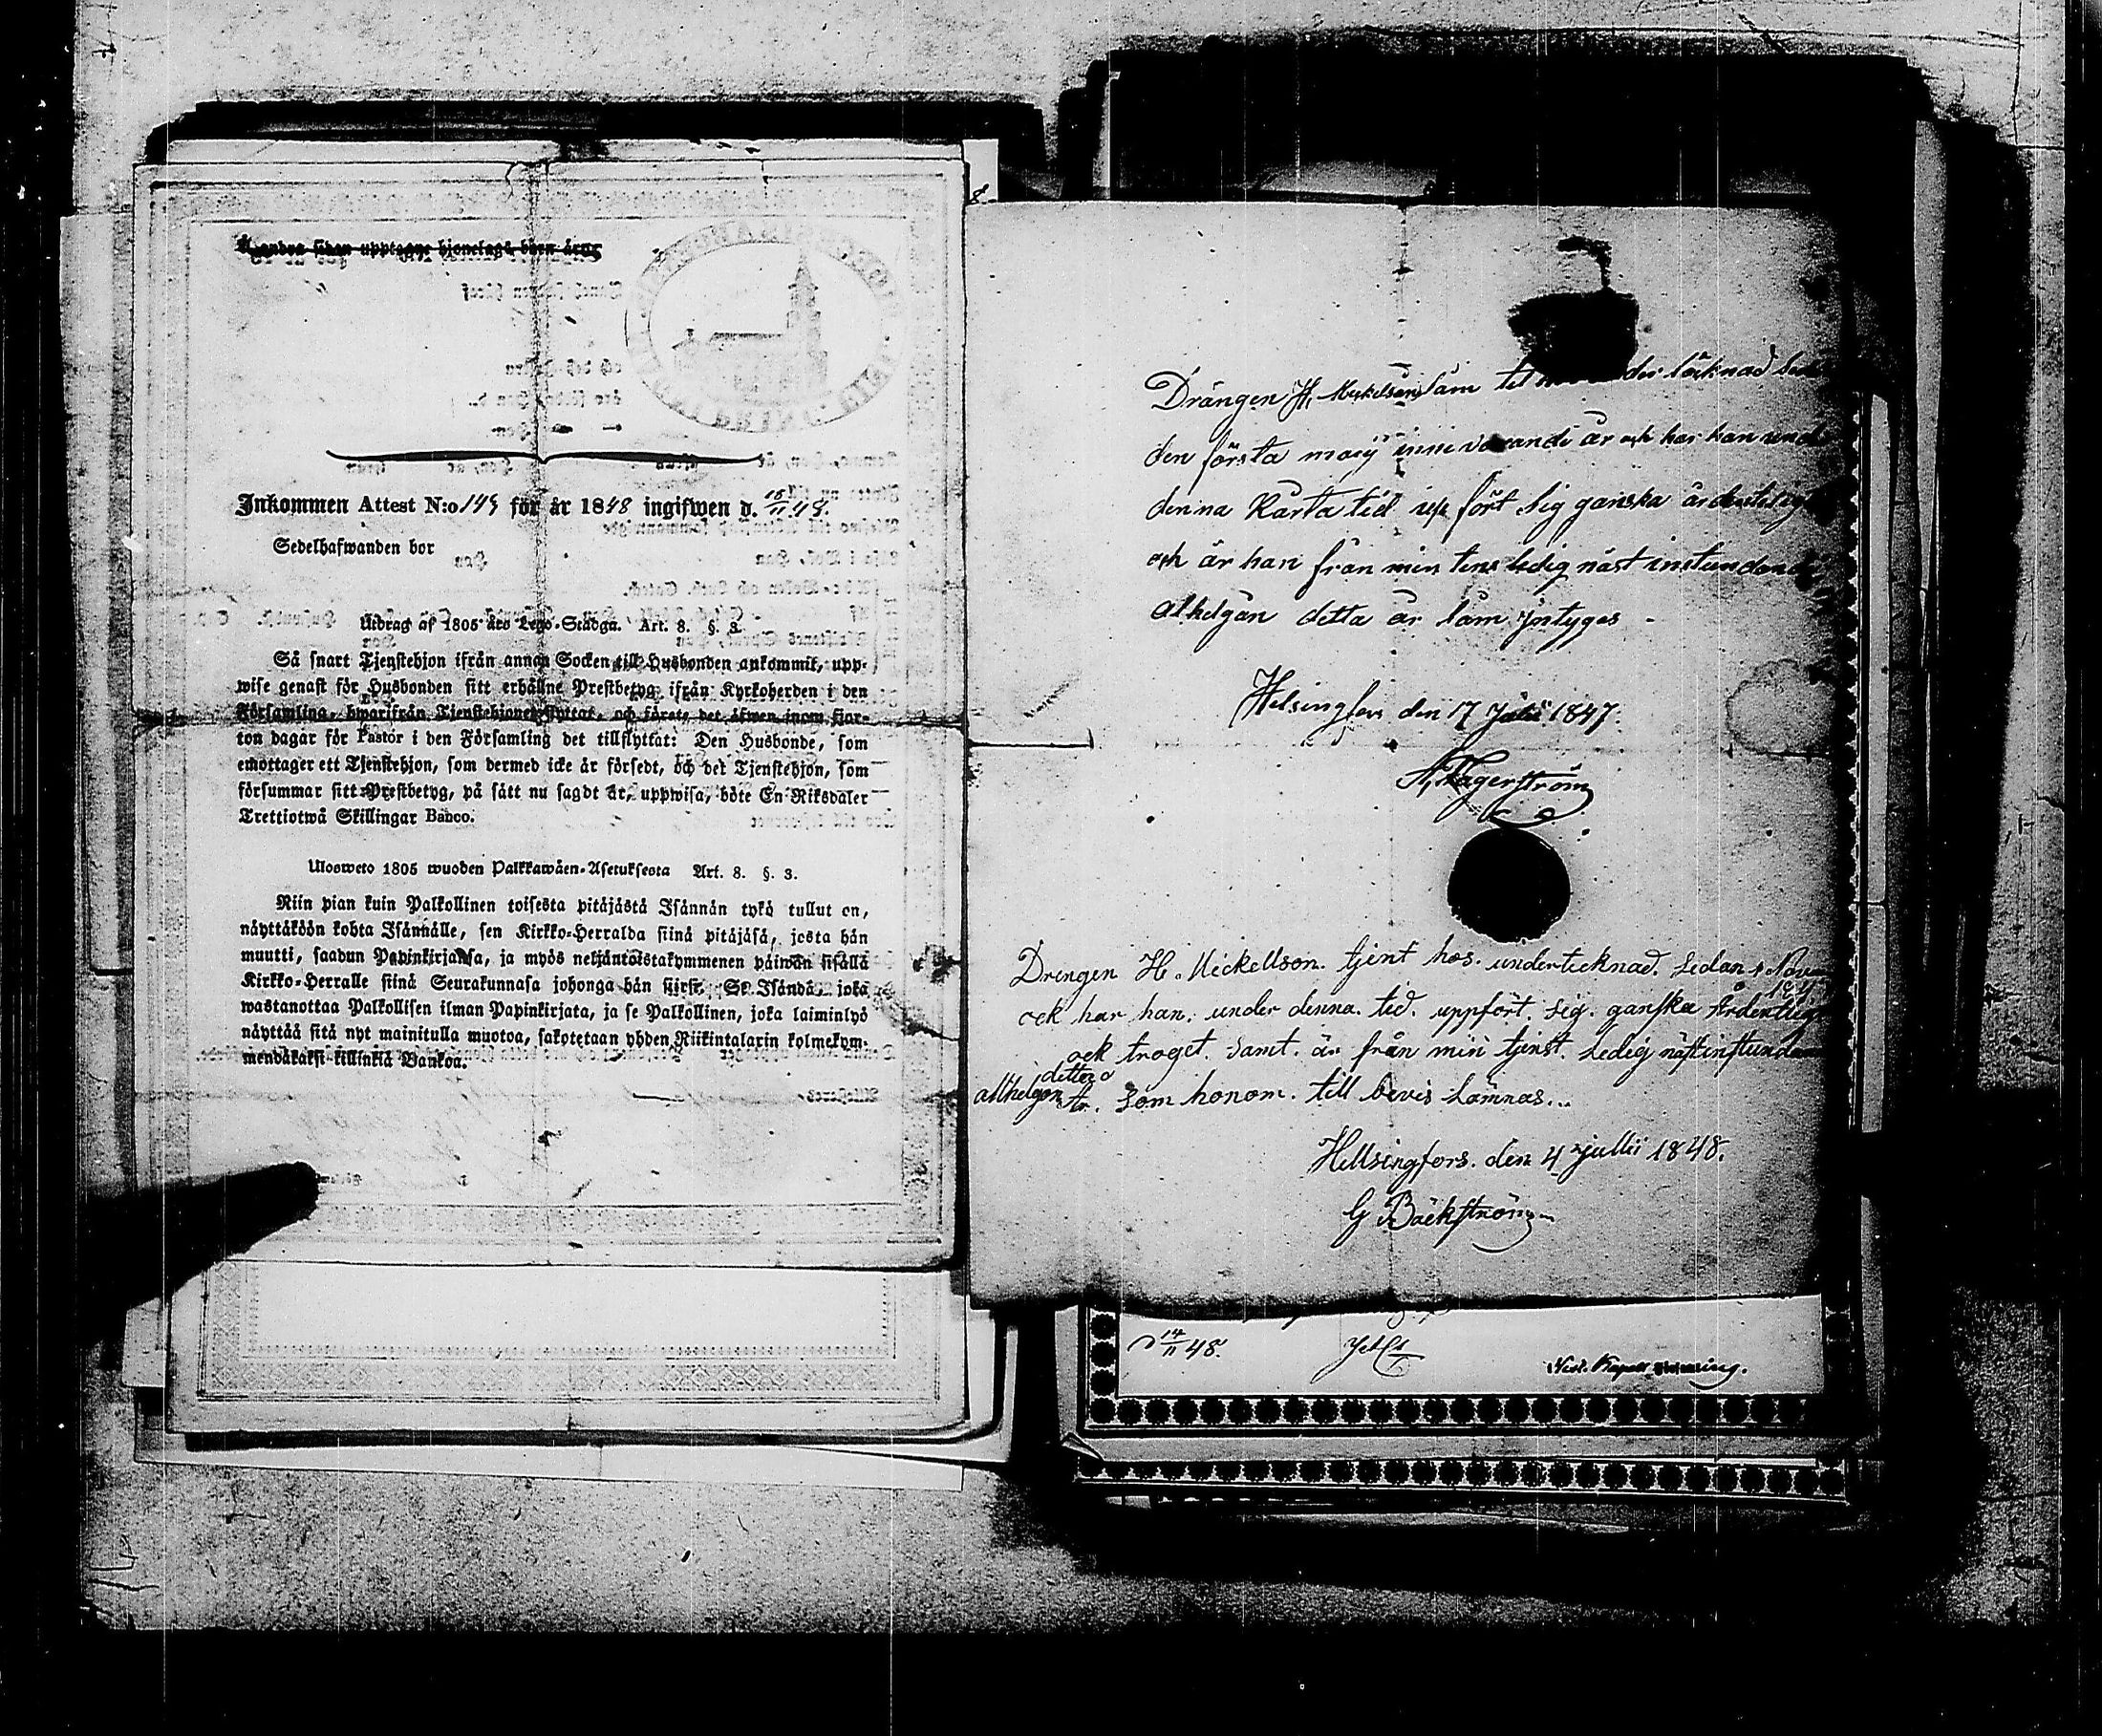 Å andra sidan upptagne hjonelags barn äro:
Inkommen Attest N:o 145 för år 1848 ingifwen d. 15/11 48.
Sedelhafwanden bor
Utdrag af 1805 års Lego-Stadga. Art. 8. §. 3.
Så snart Tjenstehjon ifrån annan Socken till Husbonden ankommit, upp-
wise genast för Husbonden sitt erhållne Prestbetyg ifrån Kyrkoherden i den
Församling, hwarifrån Tjenstehjonet flyttat, och förete det äfwen inom fjor-
ton dagar för Pastor i den Församling det tillflyttat: Den Husbonde, som
emottager ett Tjenstehjon, som dermed icke är försedt, och det Tjenstehjon, som
försummar sitt Prestbetyg, på sätt nu sagdt är, uppwisa, böte En Riksdaler
Trettiotwå Skillingar Banco.
Ulosweto 1805 wuoden Palkkawäen-Asetuksesta Art. 8. §. 3.
Niin pian kuin Palkollinen toisesta pitäjästä Isännän tykö tullut on,
näyttäköön kohta Isännälle, sen Kirkko-Herralda siinä pitäjäsä, josta hän
muutti, saadun Papinkirjansa, ja myös neljäntoistakymmenen päiwän sisällä
Kirkko-Herralle siinä Seurakunnasa johonga hän siirsi. Se Isändä, joka
wastanottaa Palkollisen ilman Papinkirjata, ja se Palkollinen, joka laiminlyö
näyttää sitä nyt mainitulla muotoa, sakotetaan yhden Riikintalarin kolmekym-
mendäkaksi killinkiä Bankoa.
Drängen H. Mickelsson som der täcknad
den första maij innevarande år och har han und
denna Korta tid up fört sig ganska ärdentligt
och är han från min tens ledig näst instundande
alhelgän detta år som Intygas
Helsingfors den 17 Julii 1847.
Drengen H. Mickellson. tjent hos. underticknad. sedan 1 Novem
ock har han. under denna. tid. uppfört. sig. ganska Ärdentligt
ock troget. samt. är från min tjenst. Ledig nästinstundan
allhelgon detta År. som honom. till bevis Lämnas...
Hellsingfors. den 4 jullii 1848.
G Bäckström
14/11 48.